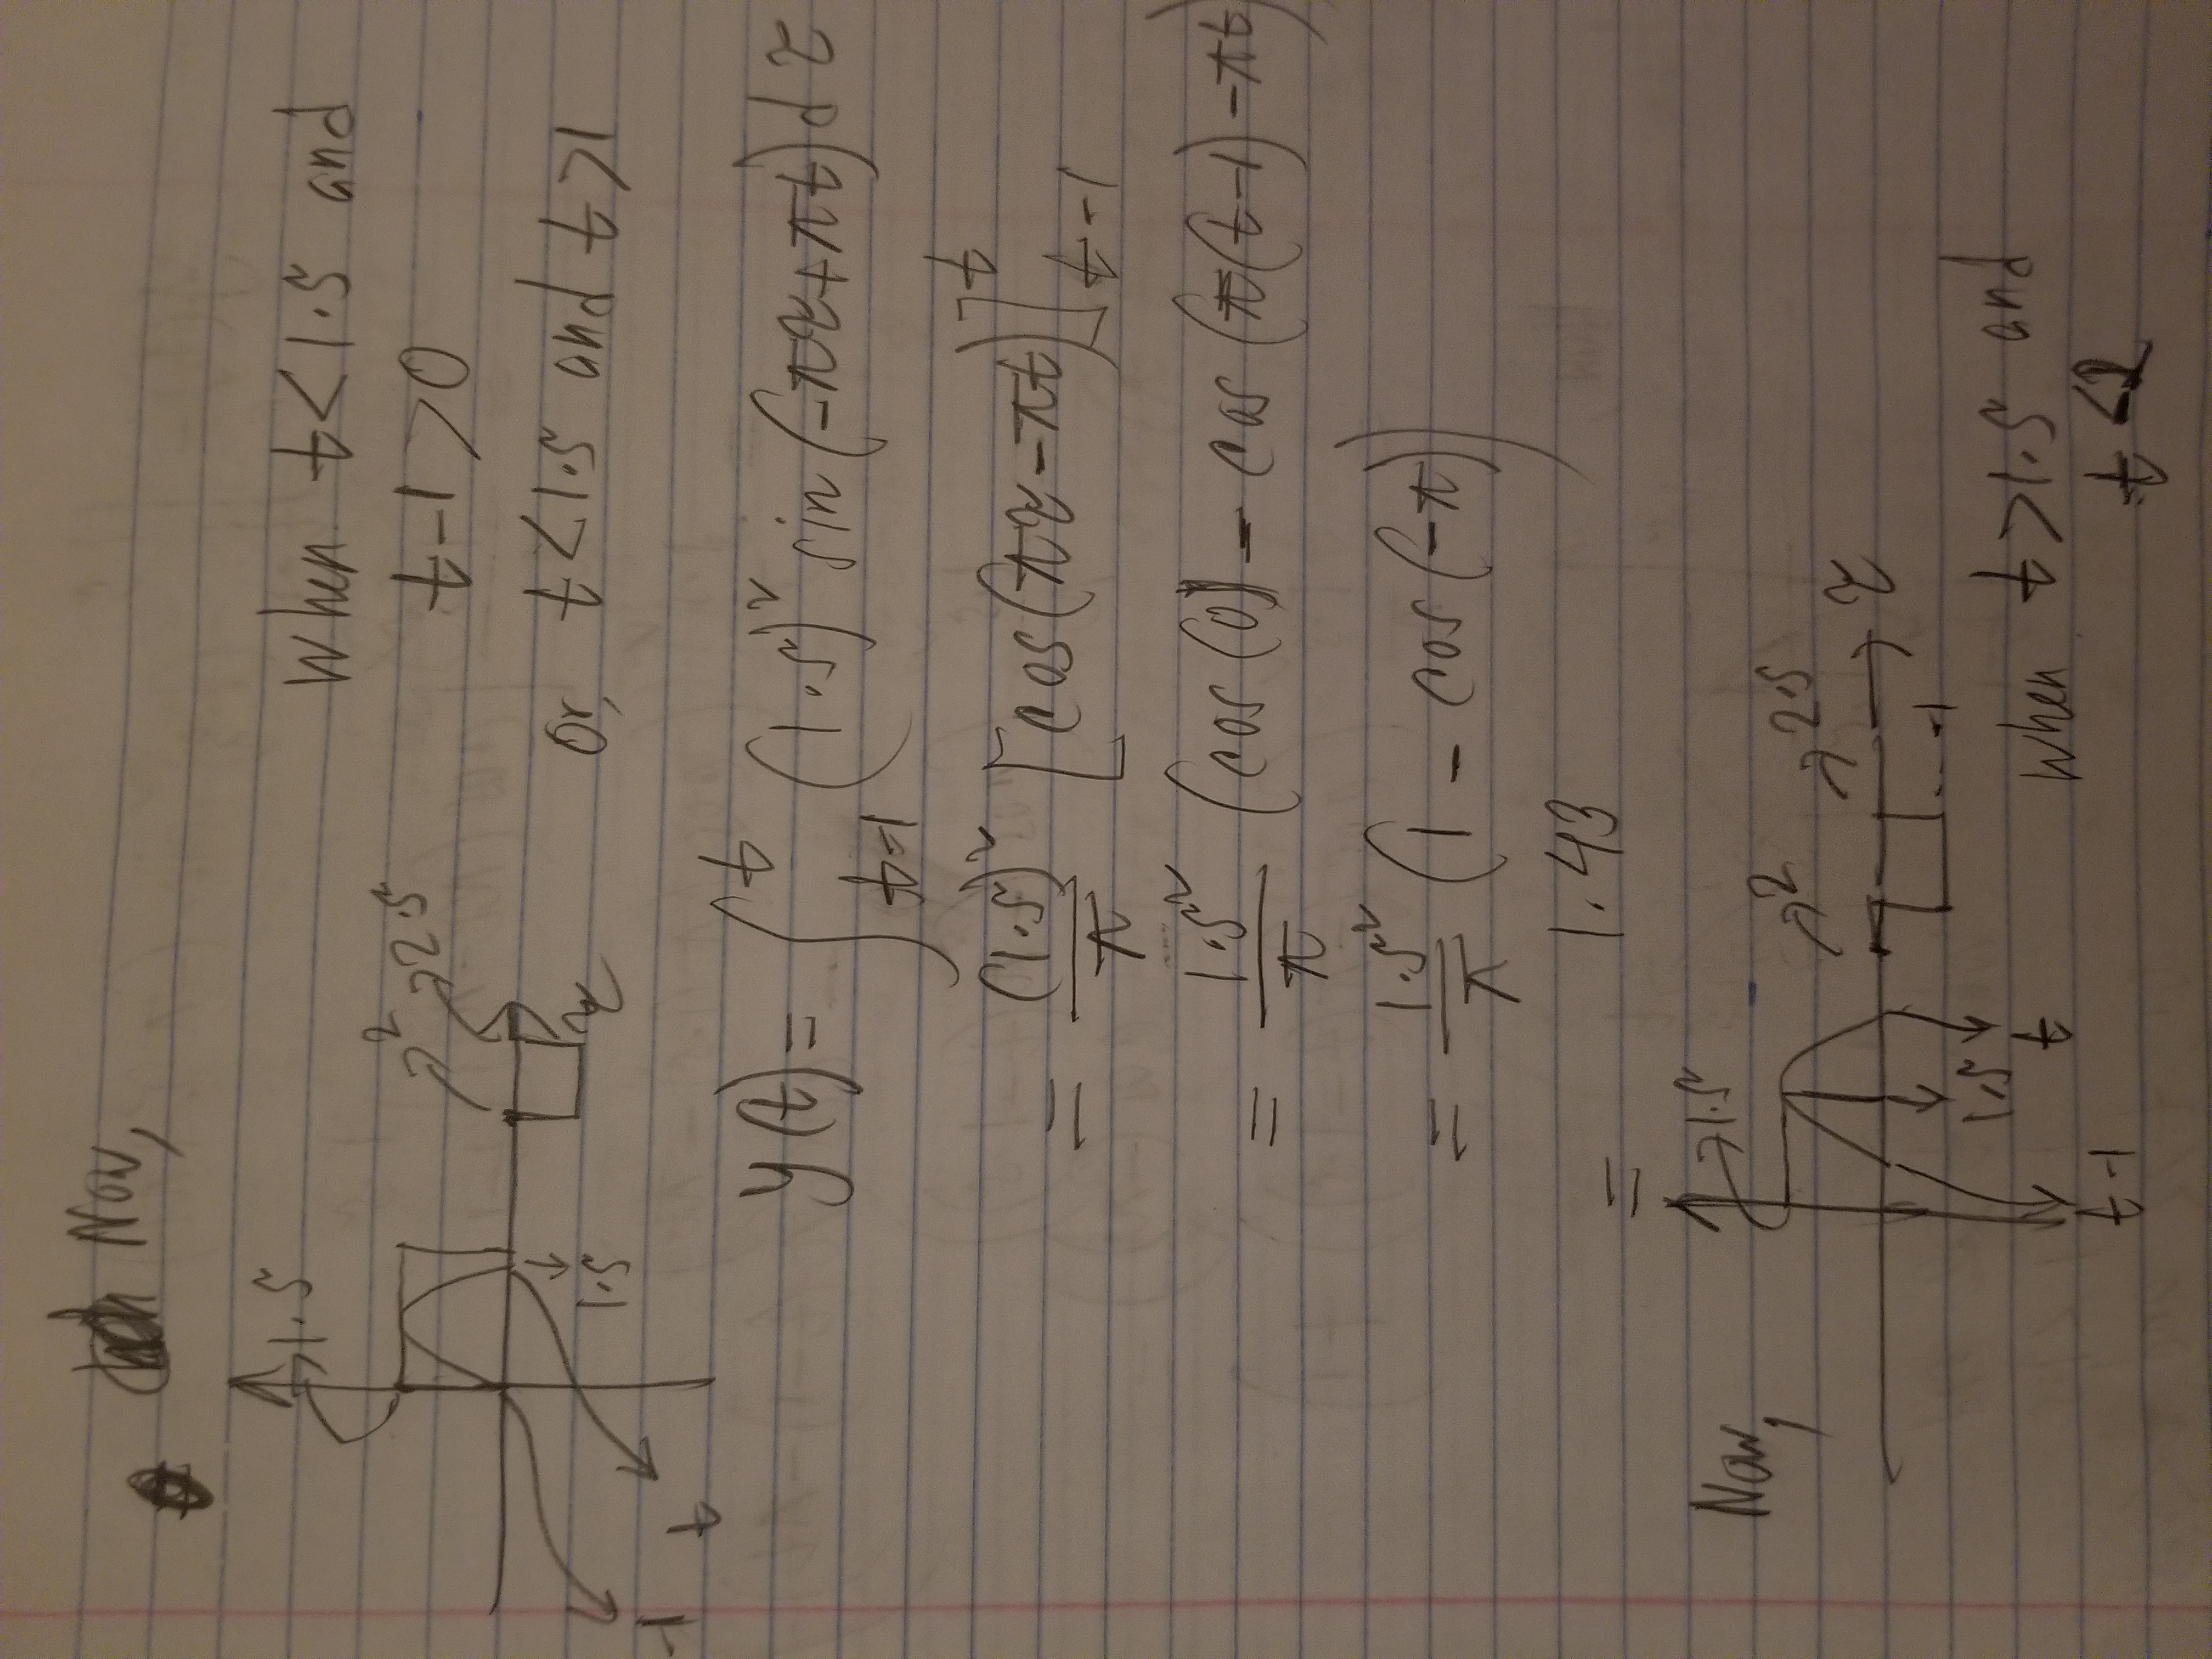 Now,
1.5
When t<1.5 and
2
2.5
t-1>0
1.5
τ
Or, t<1.5 and t>1
-1
t
y(t)= ∫_{t-1}^{t} (1.5)² sin(-πτ+πt)dτ
= (1.5)²/π [cos(πτ-πt)]_{t-1}^{t}
= 1.5²/π (cos(0) - cos(π(t-1)-πt)
= 1.5²/π (1 - cos(-π))
= 1.43
Now,
1.5
2
2.5
τ
-1
1.5
t
when t>1.5 and
t-1
t<2